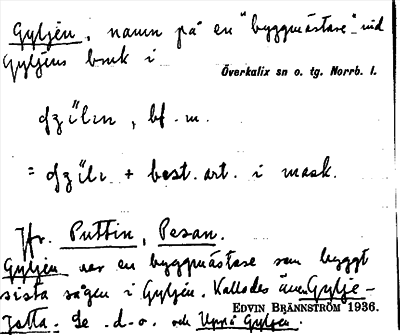 Gyljén, namn på en "byggmästare" vid
Gyljéns bruk i
Överkalix sn o. tg. Norrb. l.
bf. m.
+ best. art. i mask.
Jfr. Puttin, Pesan.
Gyljén var en byggmästare som byggt
sista sågen i Gyljén. Kallades även Gylje-
Jatta. Se d.o. och Gyljén.
EDVIN BRÄNNSTRÖM 1936.